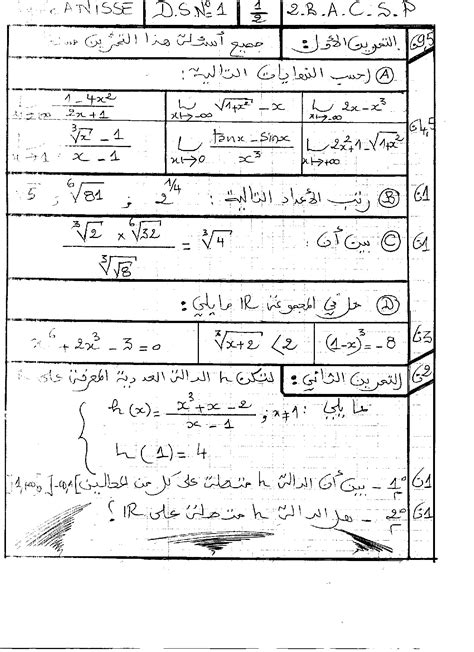 ANISSE D.S.N°1 1/2 2.B.A.C.S.P
التمرين الأول: جميع أسئلة هذا التمرين 6,5
(A) احسب النهايات التالية: 4,5
1-4x² / 2x+1    lim x→-∞ √(1+x²) - x    lim x→-∞ 2x-x³
(∛x - 1) / (x-1)    lim x→0 (tanx - sinx) / x³    lim x→+∞ 2x²+1-√(1+x²)
(B) رتب الأعداد التالية: 2^(1/4) ; ⁶√81 ; 5 01
(C) بين أن (∛2 × ⁶√32) / ∛√8 = ∛4 01
(D) حل في المجموعة IR ما يلي:
(1-x)³ = -8    ∛(x+2) < 2    x⁶ + 2x³ - 3 = 0 03
التمرين الثاني: لتكن h الدالة العددية المعرفة على 02
بما يلي: h(x) = (x³+x-2) / (x-1) ; x≠1
h(1) = 4
1° - بين أن الدالة h متصلة على كل من المجالين ]-∞,1[ ]1,+∞[ 01
2° - هل الدالة h متصلة على IR ؟ 01